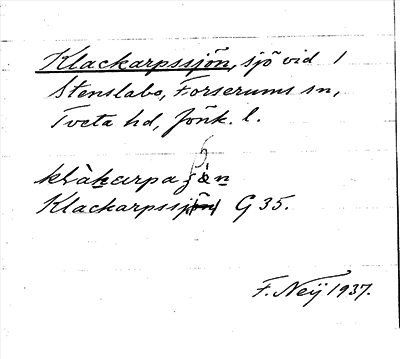 Klackarpssjön, sjö vid 1
Stenslabo, Forserums sn,
Tveta hd, Jönk. l.
Klackarpssjön G 35.
F. Neij 1937.